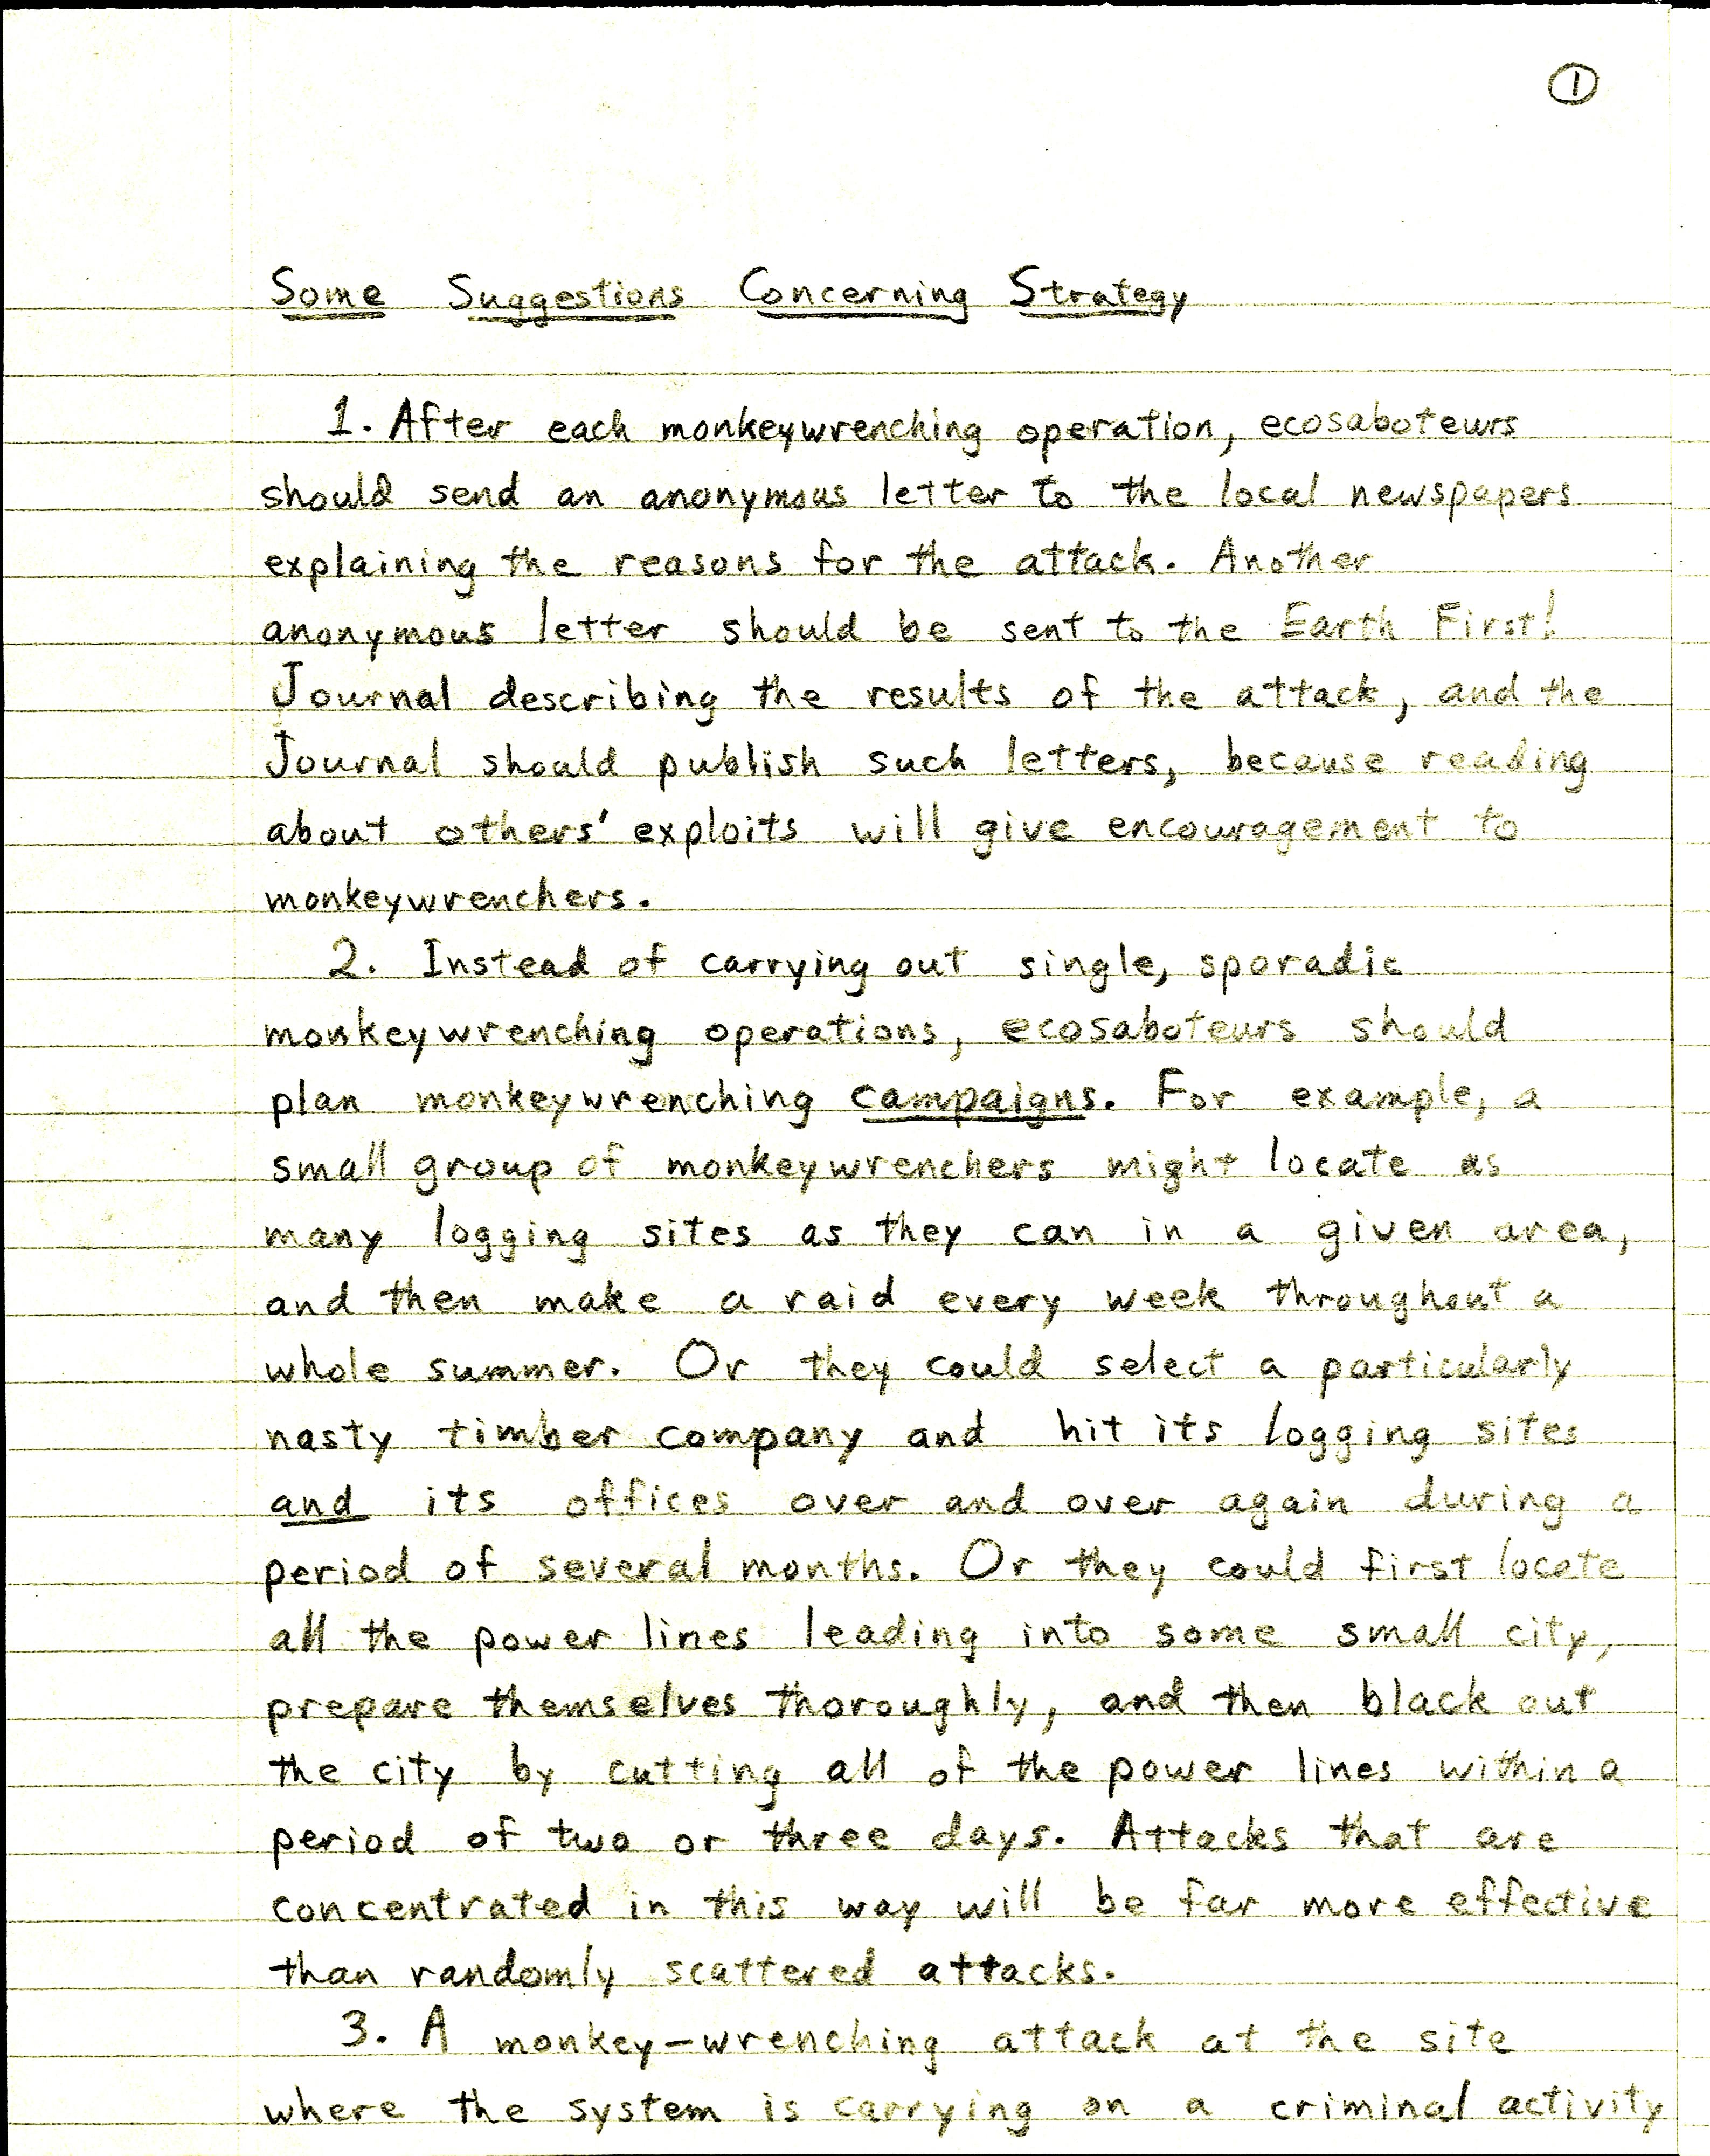 1
Some Suggestions Concerning Strategy
1. After each monkeywrenching operation, ecosaboteurs
should send an anonymous letter to the local newspapers
explaining the reasons for the attack. Another
anonymous letter should be sent to the Earth First!
Journal describing the results of the attack, and the
Journal should publish such letters, because reading
about others' exploits will give encouragement to
monkeywrenchers.
2. Instead of carrying out single, sporadic
monkeywrenching operations, ecosaboteurs should
plan monkeywrenching campaigns. For example, a
small group of monkeywrenchers might locate as
many logging sites as they can in a given area,
and then make a raid every week throughout a
whole summer. Or they could select a particularly
nasty timber company and hit its logging sites
and its offices over and over again during a
period of several months. Or they could first locate
all the power lines leading into some small city,
prepare themselves thoroughly, and then black out
the city by cutting all of the power lines within a
period of two or three days. Attacks that are
concentrated in this way will be far more effective
than randomly scattered attacks.
3. A monkey-wrenching attack at the site
where the system is carrying on a criminal activity